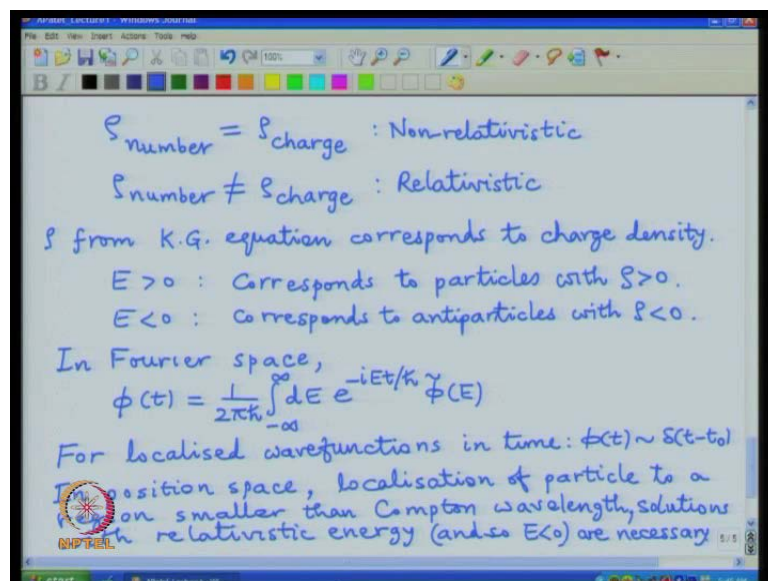 XPatel_Lecture1 - Windows Journal
File Edit View Insert Actions Tools Help
100%
B I
ρ_number = ρ_charge : Non-relativistic
ρ_number ≠ ρ_charge : Relativistic
ρ from K.G. equation corresponds to charge density.
E > 0 : Corresponds to particles with ρ>0.
E < 0 : Corresponds to antiparticles with ρ<0.
In Fourier space,
ϕ(t) = 1/2πħ ∫_{-∞}^{∞} dE e^{-iEt/ħ} ϕ̃(E)
For localised wavefunctions in time: ϕ(t) ~ δ(t-t₀)
In position space, localisation of particle to a
region smaller than Compton wavelength, solutions
with relativistic energy (and so E<0) are necessary
NPTEL
5/5
start